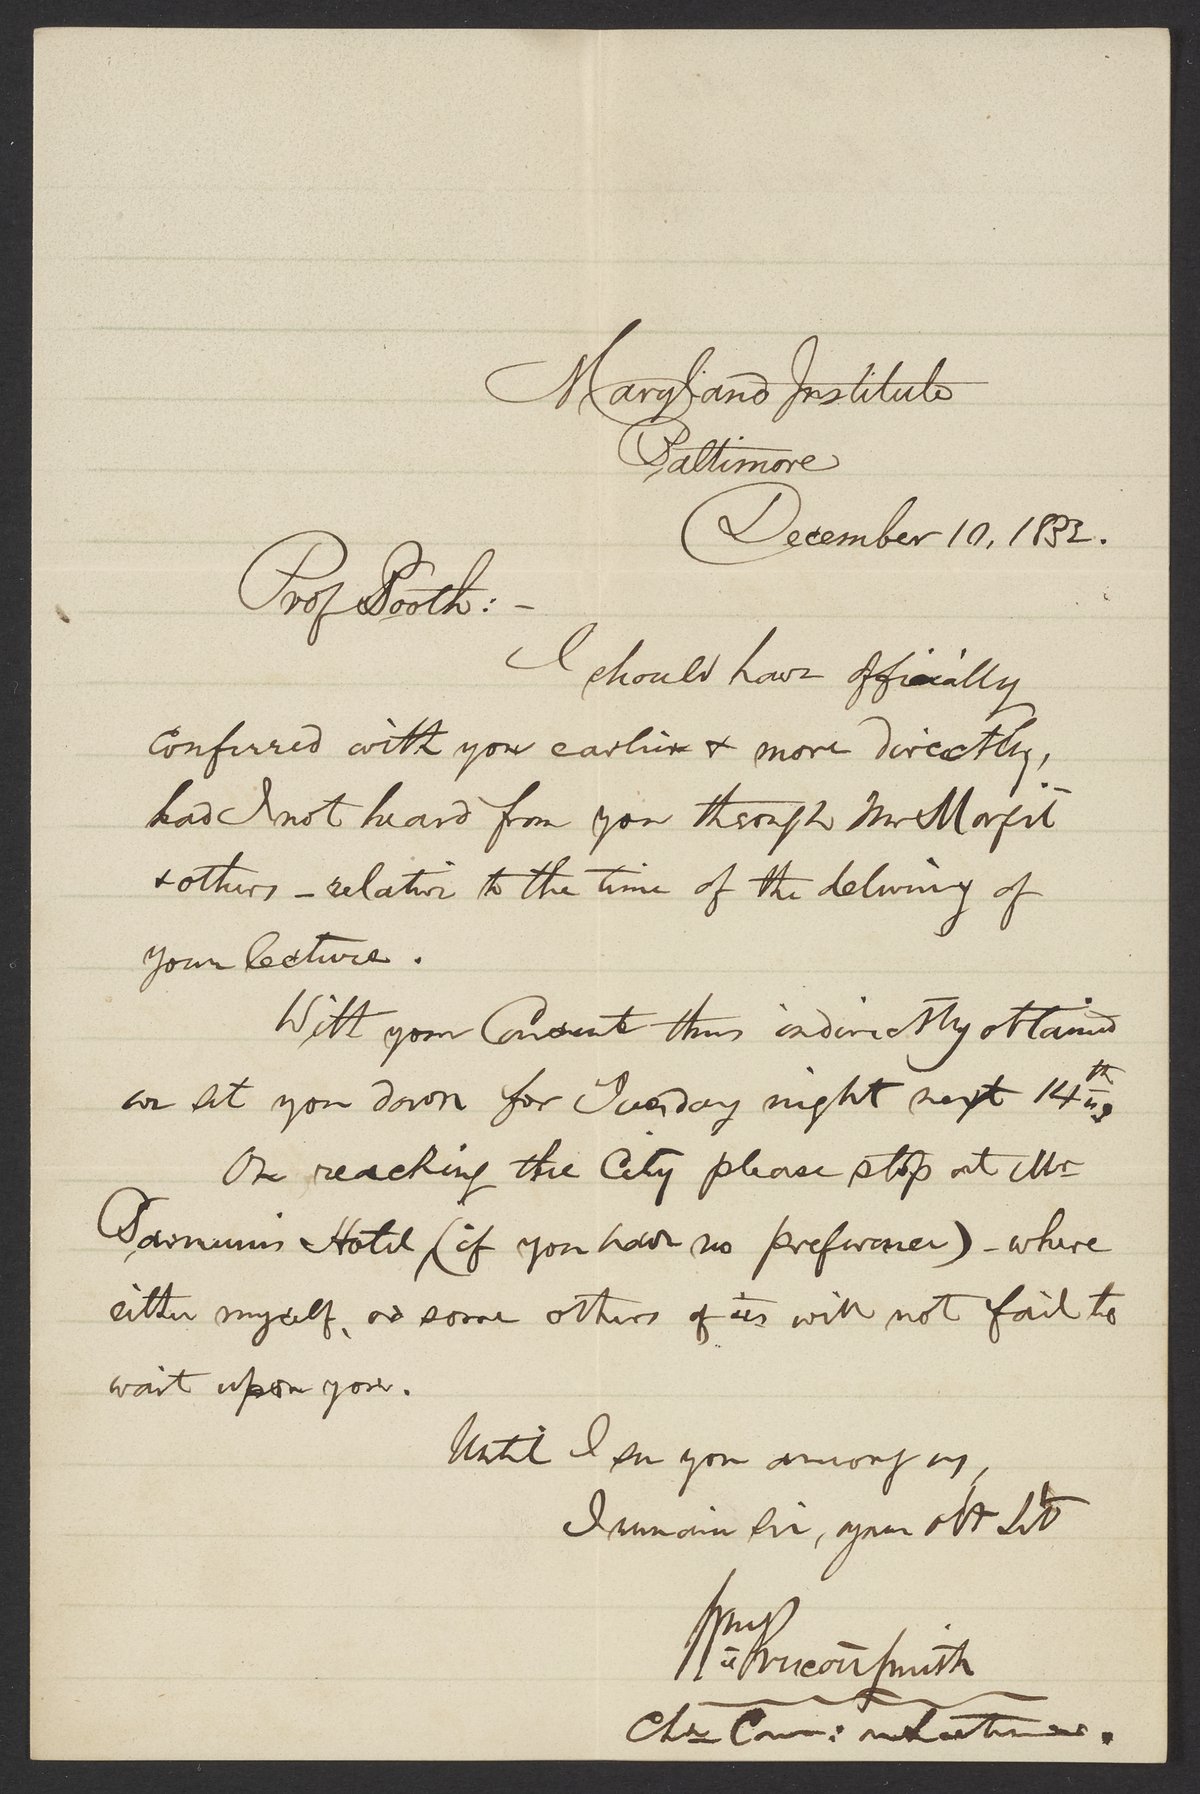 Maryland Institute
Baltimore
December 10, 1852.
Prof Booth: -
I should have officially
conferred with you earlier & more directly,
had I not heard from you through Mr Morfit
& others - relative to the time of the delivery of
your lecture.
With your Consent thus indirectly obtained
we set you down for Tuesday night next 14th
On reaching the City please stop at Mr
Barnum's Hotel (if you have no preference) - where
either myself, or some others of us will not fail to
wait upon you.
Until I see you among us,
I remain sir, your obt Svt
Wm Prescott Smith
Chn Com: on Lectures.